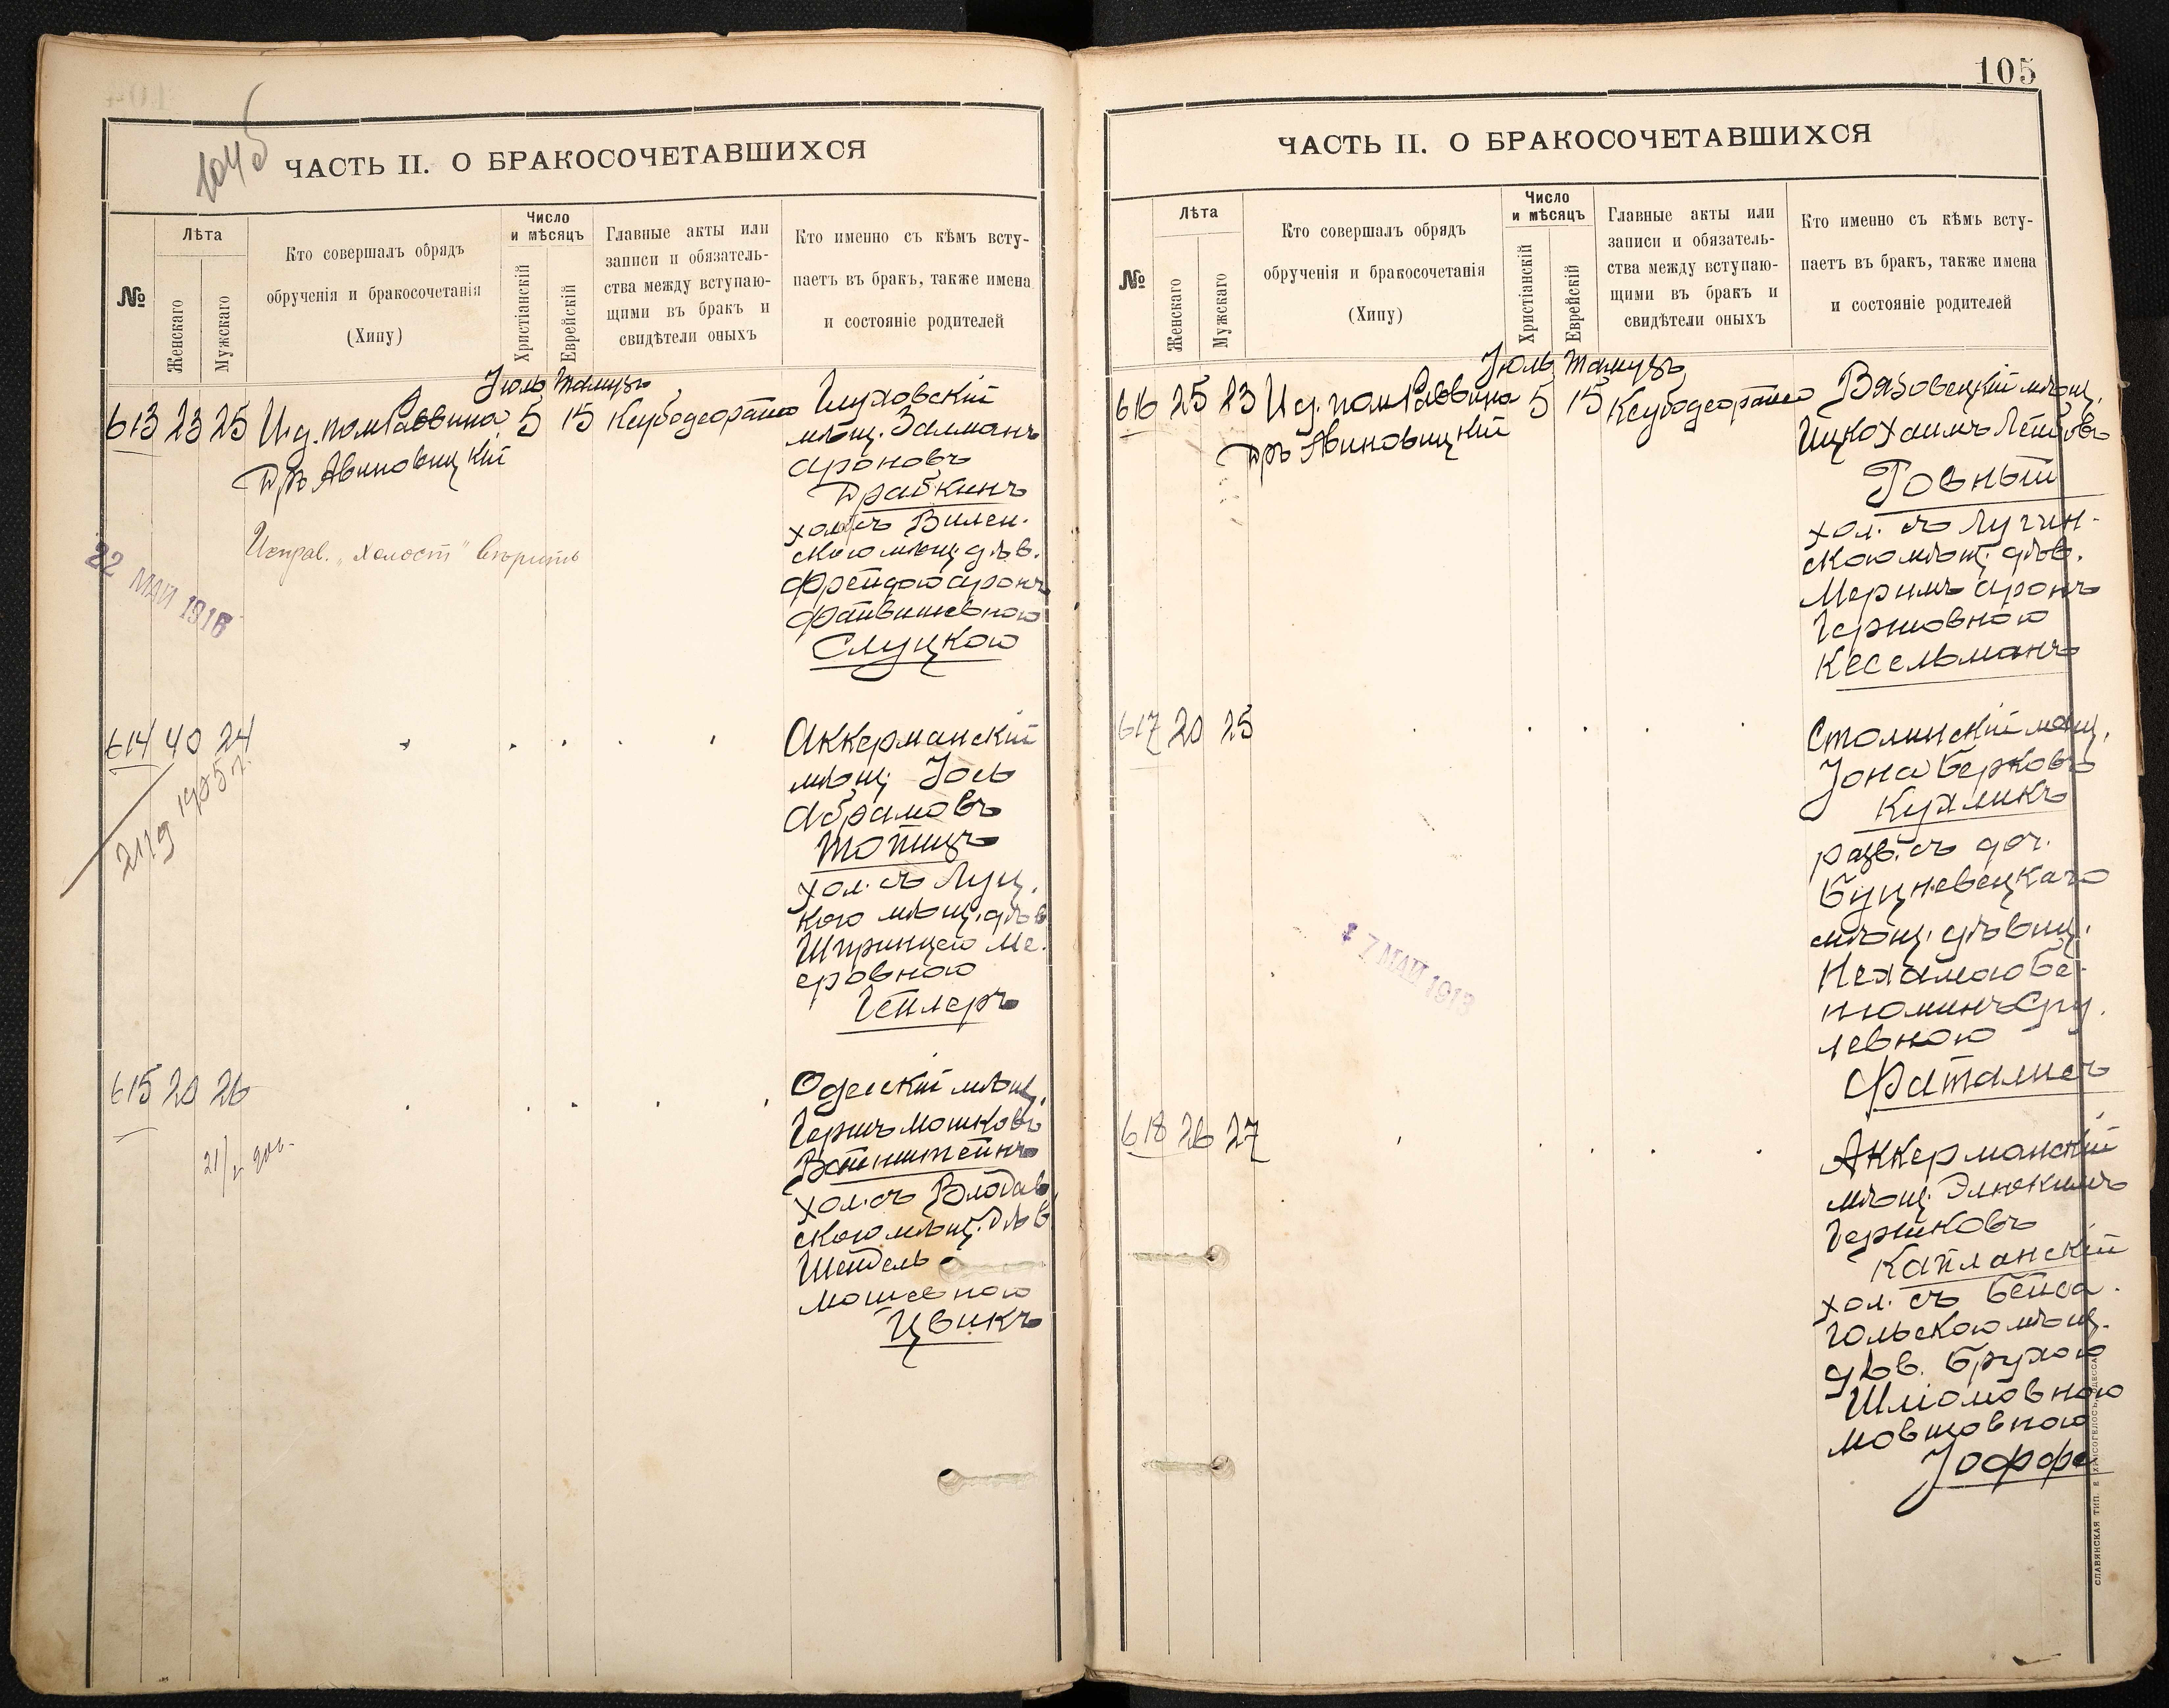 104б
ЧАСТЬ II. О БРАКОСОЧЕТАВШИХСЯ
№
Лѣта
Женскаго
Мужскаго
Кто совершалъ обрядъ
обрученія и бракосочетанія
(Хипу)
Число
и мѣсяцъ
Христіанскій
Еврейскій
Главные акты или
записи и обязатель-
ства между вступаю-
щими въ бракъ и
свидѣтели оныхъ
Кто именно съ кѣмъ всту-
паетъ въ бракъ, также имена
и состояніе родителей
Іюль Тамузъ
613 23 25 И.д. пом Раввина 5 15
Др. Авиновицкій
Глуховскій
мѣщ. Залманъ
Ароновъ
Драбкинъ
хол. съ Вилен.
скою мѣщ. дѣв.
Фрейдою Аронъ
Файвишевною
Слуцкою
Исправ. „холост" вѣрить
22 МАЙ 1916
614 40 24
1905 г.
2179
Аккерманскій
мѣщ. Іось
Абрамовъ
хол. съ Луц.
кою мѣщ. дѣв
Шпринцею Ме.
еровною
Геллеръ
615 20 26
Одесскій мѣщ.
Гершъ Мошковъ
Вайнштейнъ
хол. съ Влодав
скою мѣщ. дѣв
Шендель
Мошевною
Цвикъ
105
ЧАСТЬ II. О БРАКОСОЧЕТАВШИХСЯ
№
Лѣта
Женскаго
Мужскаго
Кто совершалъ обрядъ
обрученія и бракосочетанія
(Хипу)
Число
и мѣсяцъ
Христіанскій
Еврейскій
Главные акты или
записи и обязатель-
ства между вступаю-
щими въ бракъ и
свидѣтели оныхъ
Кто именно съ кѣмъ всту-
паетъ въ бракъ, также имена
и состояніе родителей
Іюль Тамузъ
616 25 23 И.д. пом Раввина 5 15
Др. Авиновицкій
Вязовецкій мѣщ.
Ицко Хаимъ Лейбовъ
Ровный
хол. съ Лугин-
скою мѣщ. дѣв.
Меримъ Аронъ
Гершовною
Кесельманъ
617 20 25
Столинскій мѣщ.
Іона Берковъ
Кухликъ
разв. съ доч.
Буцневецкаго
мѣщ. дѣвиц.
Нехамою Бе-
ніоминъ Сру.
левною
Фаталисъ
17 МАЙ 1913
618 26 27
Аккерманскій
мѣщ. Элюкимъ
Гершковъ
Капланскій
хол. съ Бейса.
гольскою мѣщ.
дѣв. Брухою
Шліомовною
Мовшовною
Іоффе
СЛАВЯНСКАЯ ТИП. Е ХРИСОГЕЛОСЪ, ОДЕССА.